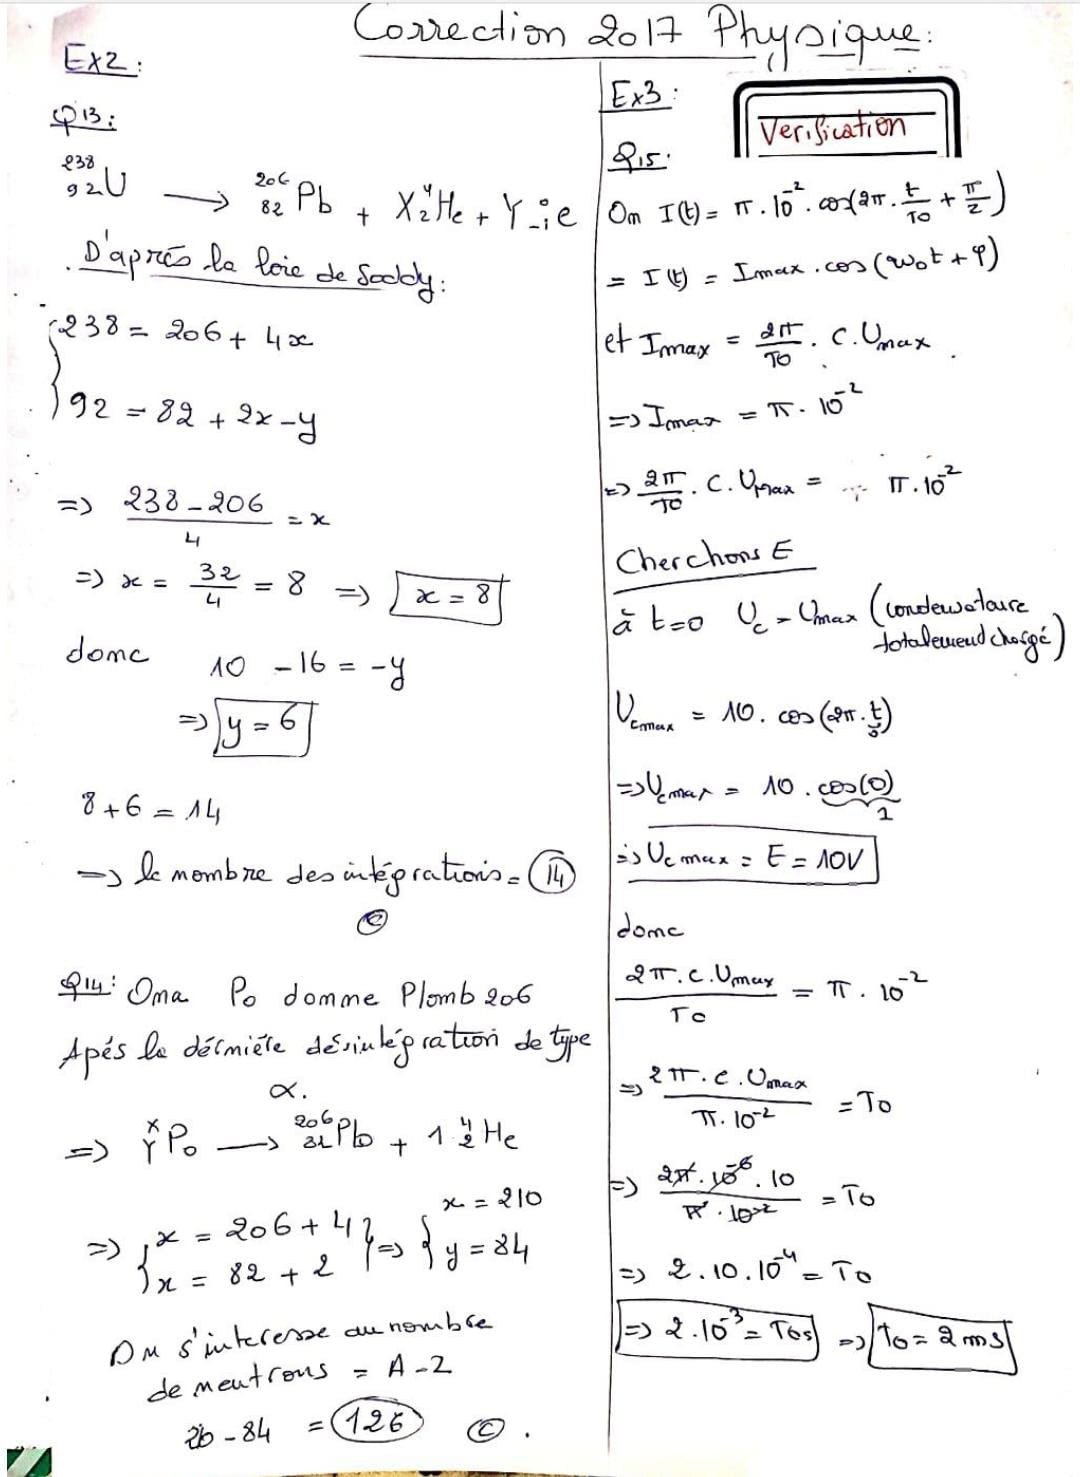 Correction 2017 Physique:
Ex2:
Q13:
²³⁸₉₂U → ²⁰⁶₈₂Pb + X⁴₂He + Y₋₁e
D'après la loie de Soddy:
238 = 206 + 4x
92 = 82 + 2x - y
=> (238 - 206)/4 = x
=> x = 32/4 = 8 => x = 8
donc 10 - 16 = -y
=> y = 6
8 + 6 = 14
=> le nombre des intégrations = 14
C
Q14: On a Po donne Plomb 206
Apés la dérnière désintégration de type
α.
=> ˣᵧPo → ²⁰⁶₈₂Pb + 1 ⁴₂He
=> { x = 206 + 4 } => { x = 210
{ x = 82 + 2 } => { y = 84
On s'interesse au nombre
de neutrons = A - Z
- 84 = 126 C.
Ex3:
Verification
Q15:
On I(t) = π.10⁻².cos(2π.t/T0 + π/2)
= I(t) = Imax.cos(ω₀t + φ)
et Imax = 2π/T0 . C.Umax
=> Imax = π.10⁻²
=> 2π/T0 . C.Umax = π.10⁻²
Cherchons E
à t=0 Uc = Umax (condensataure
totalement chargé)
Ucmax = 10.cos(2π.t/)
=> Ucmax = 10.cos(0)
1
=> Ucmax = E = 10V
donc
2π.C.Umax/T0 = π.10⁻²
=> 2π.C.Umax/π.10⁻² = T0
=> 2π.10⁻⁶.10/π.10⁻² = T0
=> 2.10.10⁻⁴ = T0
=> 2.10⁻³ = T0s => T0 = 2ms